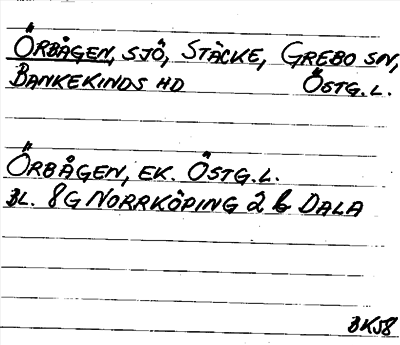 ÖRBÅGEN, SJÖ, STÄCKE, GREBO SN,
BANKEKINDS HD ÖSTG.L.
ÖRBÅGEN, EK. ÖSTG.L.
BL. 8G NORRKÖPING 2 b DALA
BK58